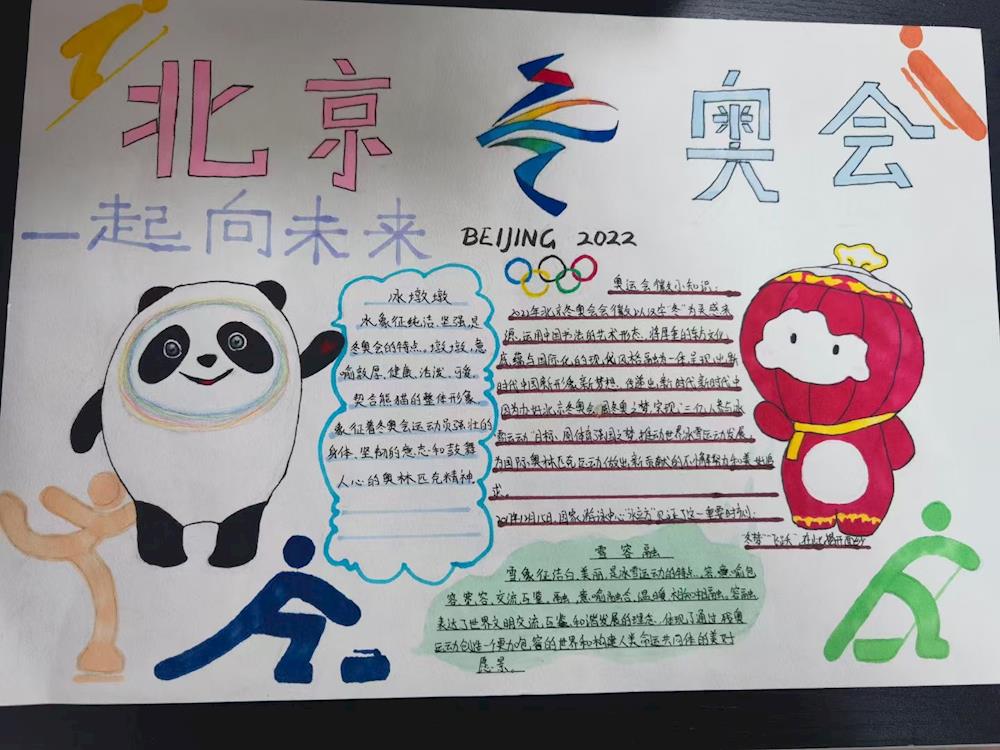 北京 奥会
一起向未来
BEIJING 2022
冰墩墩
冰象征纯洁、坚强,是
冬奥会的特点,墩墩,意
喻敦厚、健康、活泼、可爱,
契合熊猫的整体形象,
象征着冬奥会运动员强壮的
身体、坚韧的意志和鼓舞
人心的奥林匹克精神
奥运会徽小知识:
2022年北京冬奥会会徽以汉字“冬”为灵感来
源,运用中国书法的艺术形态,将厚重的东方文化
底蕴与国际化的现代风格融为一体,呈现出新
时代中国新形象、新梦想,传递出新时代新时代中
国为办好北京冬奥会,圆冬奥之梦,实现“三亿人参与冰
雪运动”目标,圆体育强国之梦,推动世界冰雪运动发展,
为国际奥林匹克运动做出新贡献的不懈努力和美好追
求。
2017年12月15日,国家游泳中心“水立方”见证了这一重要时刻:
冬梦“飞跃”,在此揭开序幕
雪容融
雪,象征洁白、美丽,是冰雪运动的特点,容,意喻包
容、宽容,交流互鉴,融,意喻融合,温暖,相知相融。容融
表达了世界文明交流互鉴、和谐发展的理念,体现了通过残奥
运动创造一个更加包容的世界和构建人类命运共同体的美好
愿景。